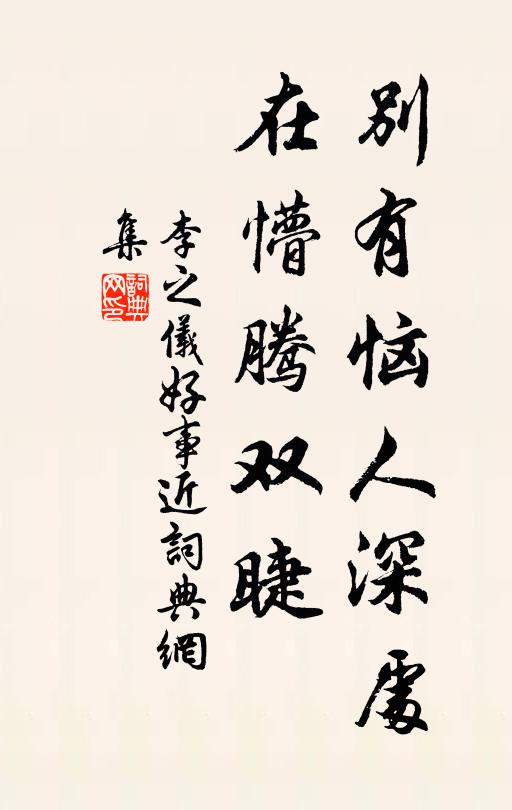 别有恼人深處
在懵腾双睫
李之儀好事近詞典網
集
詞典
网印